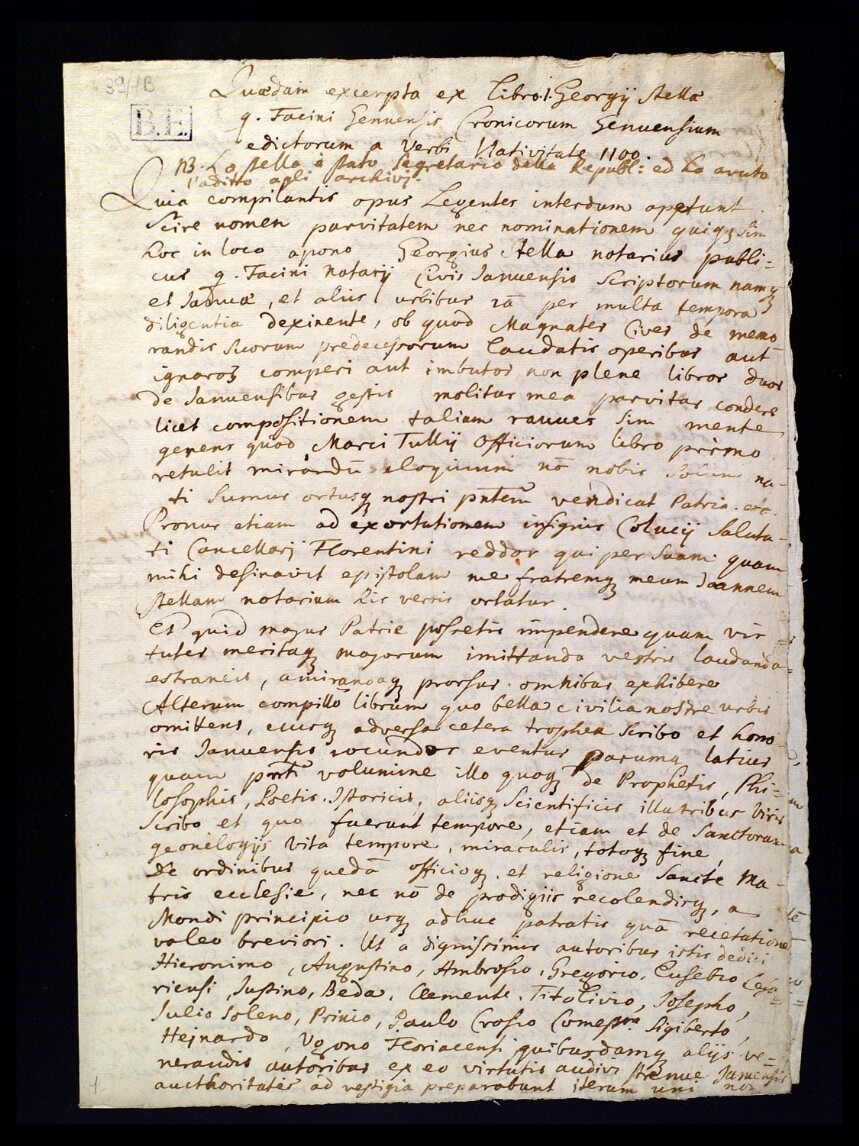 39/1B
B.E.
Quædam excerpta ex Libro .1. Georgij Stellæ
q. Facini Genuensis Cronicorum Genuensium
edictorum a Verbi Nativitate 1100.
NB. Lo Stella è stato Segretario della Republ: ed ha avuto
l'adito agli archivj.
Quia compilantis opus Legentes interdum appetunt
Scire nomen parvitatem nec nominationem quiq sim
hoc in loco apono Georgius Stella notarius publi-
cus q. Facini notarij Civis Januensis Scriptorum namq
et Januæ, et aliis urbibus iã per multa tempora
diligentia dexinente, ob quod Magnates Cives de memo
randis suorum predecessorum laudatis operibus aut
ignaros comperi aut imbutos non plene libros duos
de Januensibus gestis molitur mea parvitas condere
licet compositionem taliam rauues sim mente
gerens quod Marci Tullij Officiorum libro primo
retulit mirandũ eloquium nõ nobis solum na-
ti sumus ortusq nostri pntem vendicat Patria. etc.
Pronus etiam ad exortationem insignis Colucij Saluta-
ti Cancellarj Florentini reddor qui per suam quam
mihi destinavit epistolam me fratremq meum Joannem
Stellam notarium his verbis ortatur.
Et quid majus Patrie possetis impendere quam vir
tutes meritaq majorum imittanda vestris laudanda
estraneis, amirandaq prorsus omnibus exhibere
Alterum compillo librum quo bella civilia nostre urbis
omittens, eiusq adversa cetera trophea scribo et hono
ris Januensis iocundos eventus parumq latius
quam pnti volumine illo quoq de Prophetis, Phi-
losophis, Poetis. Istoricis, aliisq scientificis illustribus viris
scribo et quo fuerunt tempore, etiam et de Sanctorum
geonelogijs vita tempore, miraculis, totoq fine,
de ordinibus quedã officioq et religione Sancte Ma-
tris ecclesie, nec nõ de prodigiis recolendisq, a
Mondi principio usq adhuc patratis quã recetatione
valeo breviori. Ut a dignissimis autoribus istis dedici
Hieronimo, Augustino, Ambrosio, Gregorio, Eusebio Cesa-
riensi, Justino, Beda, Clemente, Titolivio, Josepho,
Julio Soleno, Prinio, Paulo Crosio Comestore Sigiberto,
Heinardo, Vgono Floriacensi quibusdamq alijs ve-
nerandis autoribus ex eo virtutis audivi strenue Januensis
aucthoritates ad vestigia preparabunt iterum uni non
1